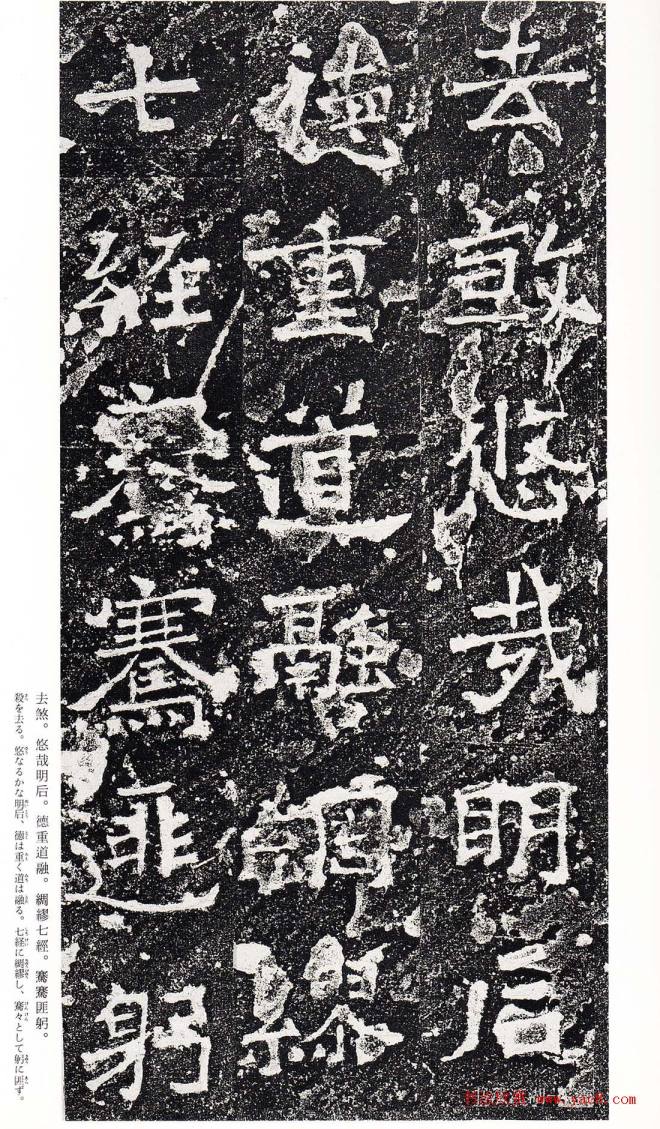 去煞悠哉明后
德重道融綢繆
七經騫騫匪躬
去煞。悠哉明后。德重道融。綢繆七經。騫騫匪躬。
殺を去る。悠なるかな明后、徳は重く道は融る。七経に綢繆し、騫々として躬に匪ず。
书法欣赏 www.yac8.com